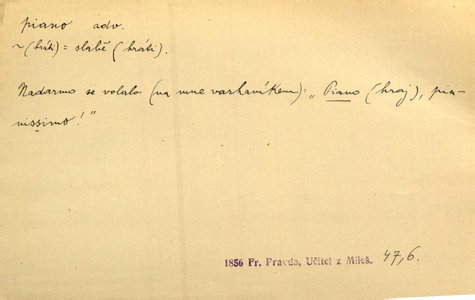 piano adv.
~ (hráti) = slabě (hráti).
Nadarmo se volalo (na mne varhaníkem): „Piano (hraj), pia-
nissimo!"
1856 Fr. Pravda, Učitel z Mileš. 47,6.